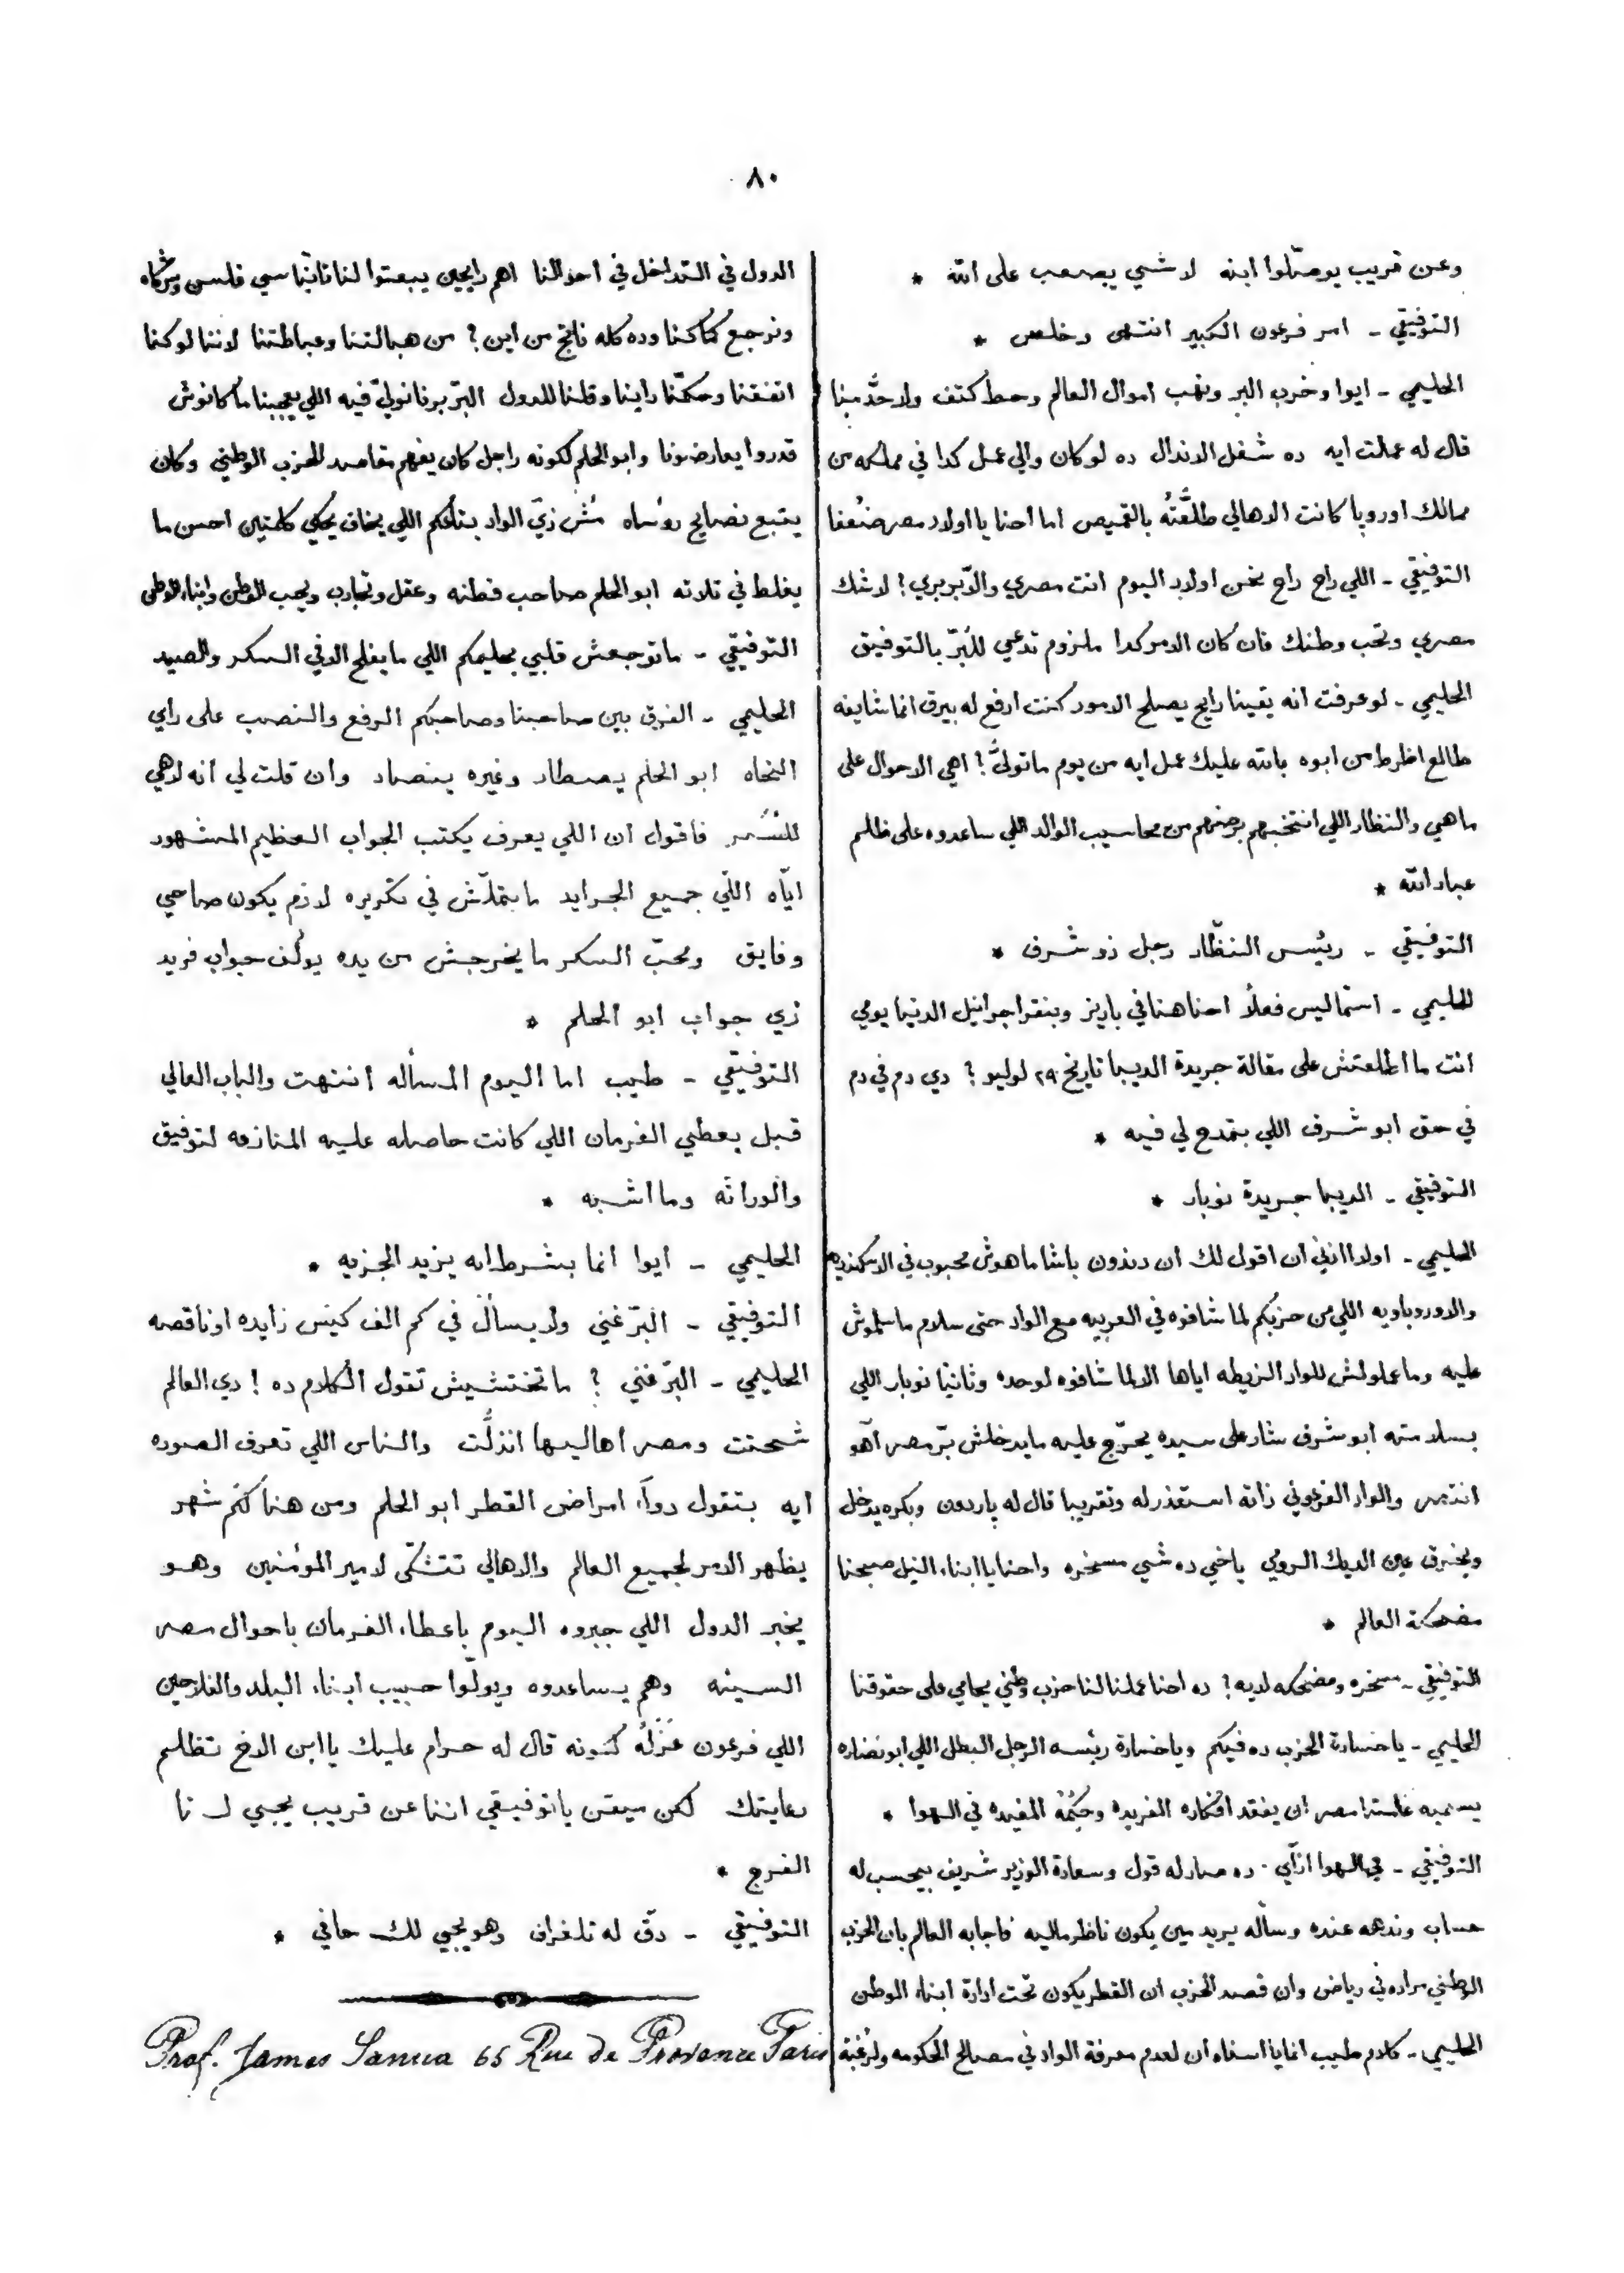 ٨٠
وعن قريب يوصّلوا ابنه لا شي يصعب على الله *
التوفيقي - امر فرعون الكبير انتهى وخلص *
الحليمي - ايوا وخرب البر ونهب اموال العالم وحط كتف ولا حدّ منا
قال له عملت ايه ده شغل الاندال ده لو كان والي عمل كدا في مملكه من
ممالك اوروبا كانت الاهالي طلعّتهُ بالقميص اما احنا يا اولاد مصر ضُعفا
التوفيقي - اللي راح راح نحن اولاد اليوم انت مصري والّا بربري؟ لا شك
مصري وتحب وطنك فان كان الامر كدا ملزوم تدعي للبرّ بالتوفيق
الحليمي - لو عرفت انه يقينا رايح يصلح الامور كنت ارفع له بيرق انما شايفه
طالع اظرط من ابوه بالله عليك عمل ايه من يوم ما تولىّ؟ اهي الاحوال على
ما هي والنظار اللي انتخبهم برضهم من محاسيب الوالد اللي ساعدوه على ظلم
عباد الله *
التوفيقي - رئيس النظّار رجل ذو شرف *
الحليمي - اسمّاليس فعلاً احنا هنا في باريز وبنقرا جرانيل الدنيا يومي
انت ما اطلعتش على مقالة جريدة الديبا تاريخ ٢٩ لوليو؟ دي دم في دم
في حق ابو شرف اللي بتمدح لي فيه *
التوفيقي - الديبا جريدة نوبار *
الحليمي - اولا اذني ان اقول لك ان دندون باشا ماهوش محبوب في الاسكندريه
والاوروباويه اللي من حزبكم لما شافوه في العربيه مع الواد حتى سلام ما سلموش
عليه وما عملولش للواد الزيطه اياها الا لما شافوه لوحده وثانيا نوبار اللي
بسلامته ابو شرف شار على سيده يحرّج عليه ما يدخلش برّ مصر آهو
انتصر والواد الفرعوني ذاته استعذر له وتقريبا قال له باردون وبكره يدخل
ويخرق عين الديك الرومي ياخي ده شي مسخره واحنا يا ابناء النيل صبحنا
مضحكة العالم *
التوفيقي - مسخره ومضحكه لديه؟ ده احنا عملنا لنا حزب وطني يحامي على حقوقنا
الحليمي - يا خسارة الحزب ده فيكم ويا خسارة رئيسه الرجل البطل اللي ابو نضاره
يسميه غامبتا مصر ان يفقد افكاره الفريده وحِكَمهُ المفيده في الهوا *
التوفيقي - في الهوا ازّاي. ده صار له قول وسعادة الوزير شريف بيحسب له
حساب وندهه عنده وسأله يريد مين يكون ناظر ماليه فاجابه العالم بان الحزب
الوطني مراده في رياض وان قصد الحزب ان القطر يكون تحت ادارة ابناء الوطن
الحليمي - كلام طيب انما يا اسفاه ان لعدم معرفة الواد في مصالح الحكومه ولرغبة
الدول في التداخل في احوالنا اهم رايحين يبعتوا لنا ثانيا سي فلسن وشركاه
ونرجع كما كنا وده كله ناتج من اين؟ من هبالتنا وعباطتنا لاننا لو كنا
اتفقنا وحكمّنا راينا وقلنا للدول البرّ برنا نوليّ فيه اللي يعجبنا ما كانوش
قدروا يعارضونا وابو الحلم لكونه راجل كان يفهم مقاصد الحزب الوطني وكان
يتبع نصايح رؤساه مُش زيّ الواد بتاعكم اللي يخاف يحكي كلمتين احسن ما
يغلط في ثلاثه ابو الحلم صاحب فطنه وعقل وتجارب ويحب الوطن وابناء الوطن
التوفيقي - ما توجعش قلبي بحليمكم اللي ما يفلح الا في السكر والصيد
الحليمي - الفرق بين صاحبنا وصاحبكم الرفع والنصب على راي
النحاه ابو الحلم يصطاد وغيره ينصاد وان قلت لي انه لاهي
للسُكر فاقول ان اللي يعرف يكتب الجواب العظيم المشهور
ايّاه اللّي جميع الجرايد ما بتملّش في تكريره لازم يكون صاحي
وفايق ومحبّ السكر ما يخرجش من يده يولّف جواب فريد
زي جواب ابو الحلم *
التوفيقّي - طيب اما اليوم المسأله انتهت والباب العالي
قبل يعطي الفرمان اللي كانت حاصله عليه المنازعه لتوفيق
والوراثه وما اشبه *
الحليمي - ايوا انما بشرط انه يزيد الجزيه *
التوفيقي - البرّ غني ولا يسأل في كم الف كيس زايده او ناقصه
الحليمي - البرّ غني؟ ما تختشيش تقول الكلام ده! دي العالم
شحتت ومصر اهاليها انذلّت والناس اللي تعرف الصوره
ايه بتقول دواء امراض القطر ابو الحلم ومن هنا كم شهر
يظهر الامر لجميع العالم والاهالي تتشكّى لامير المؤمنين وهو
يخبر الدول اللي جبروه اليوم باعطاء الفرمان باحوال مصر
السيئه وهم يساعدوه ويولّوا حبيب ابناء البلد والفلاحين
اللي فرعون عَزَلهُ كونه قال له حرام عليك يا ابن الاخ تظلم
رعايتك لكن ميقن يا توفيقي اننا عن قريب يجي لنا
الفرج *
التوفيقي - دقّ له تلغراف وهو يجي لك حافي *
Prof. James Sanua 65 Rue de Provence Paris